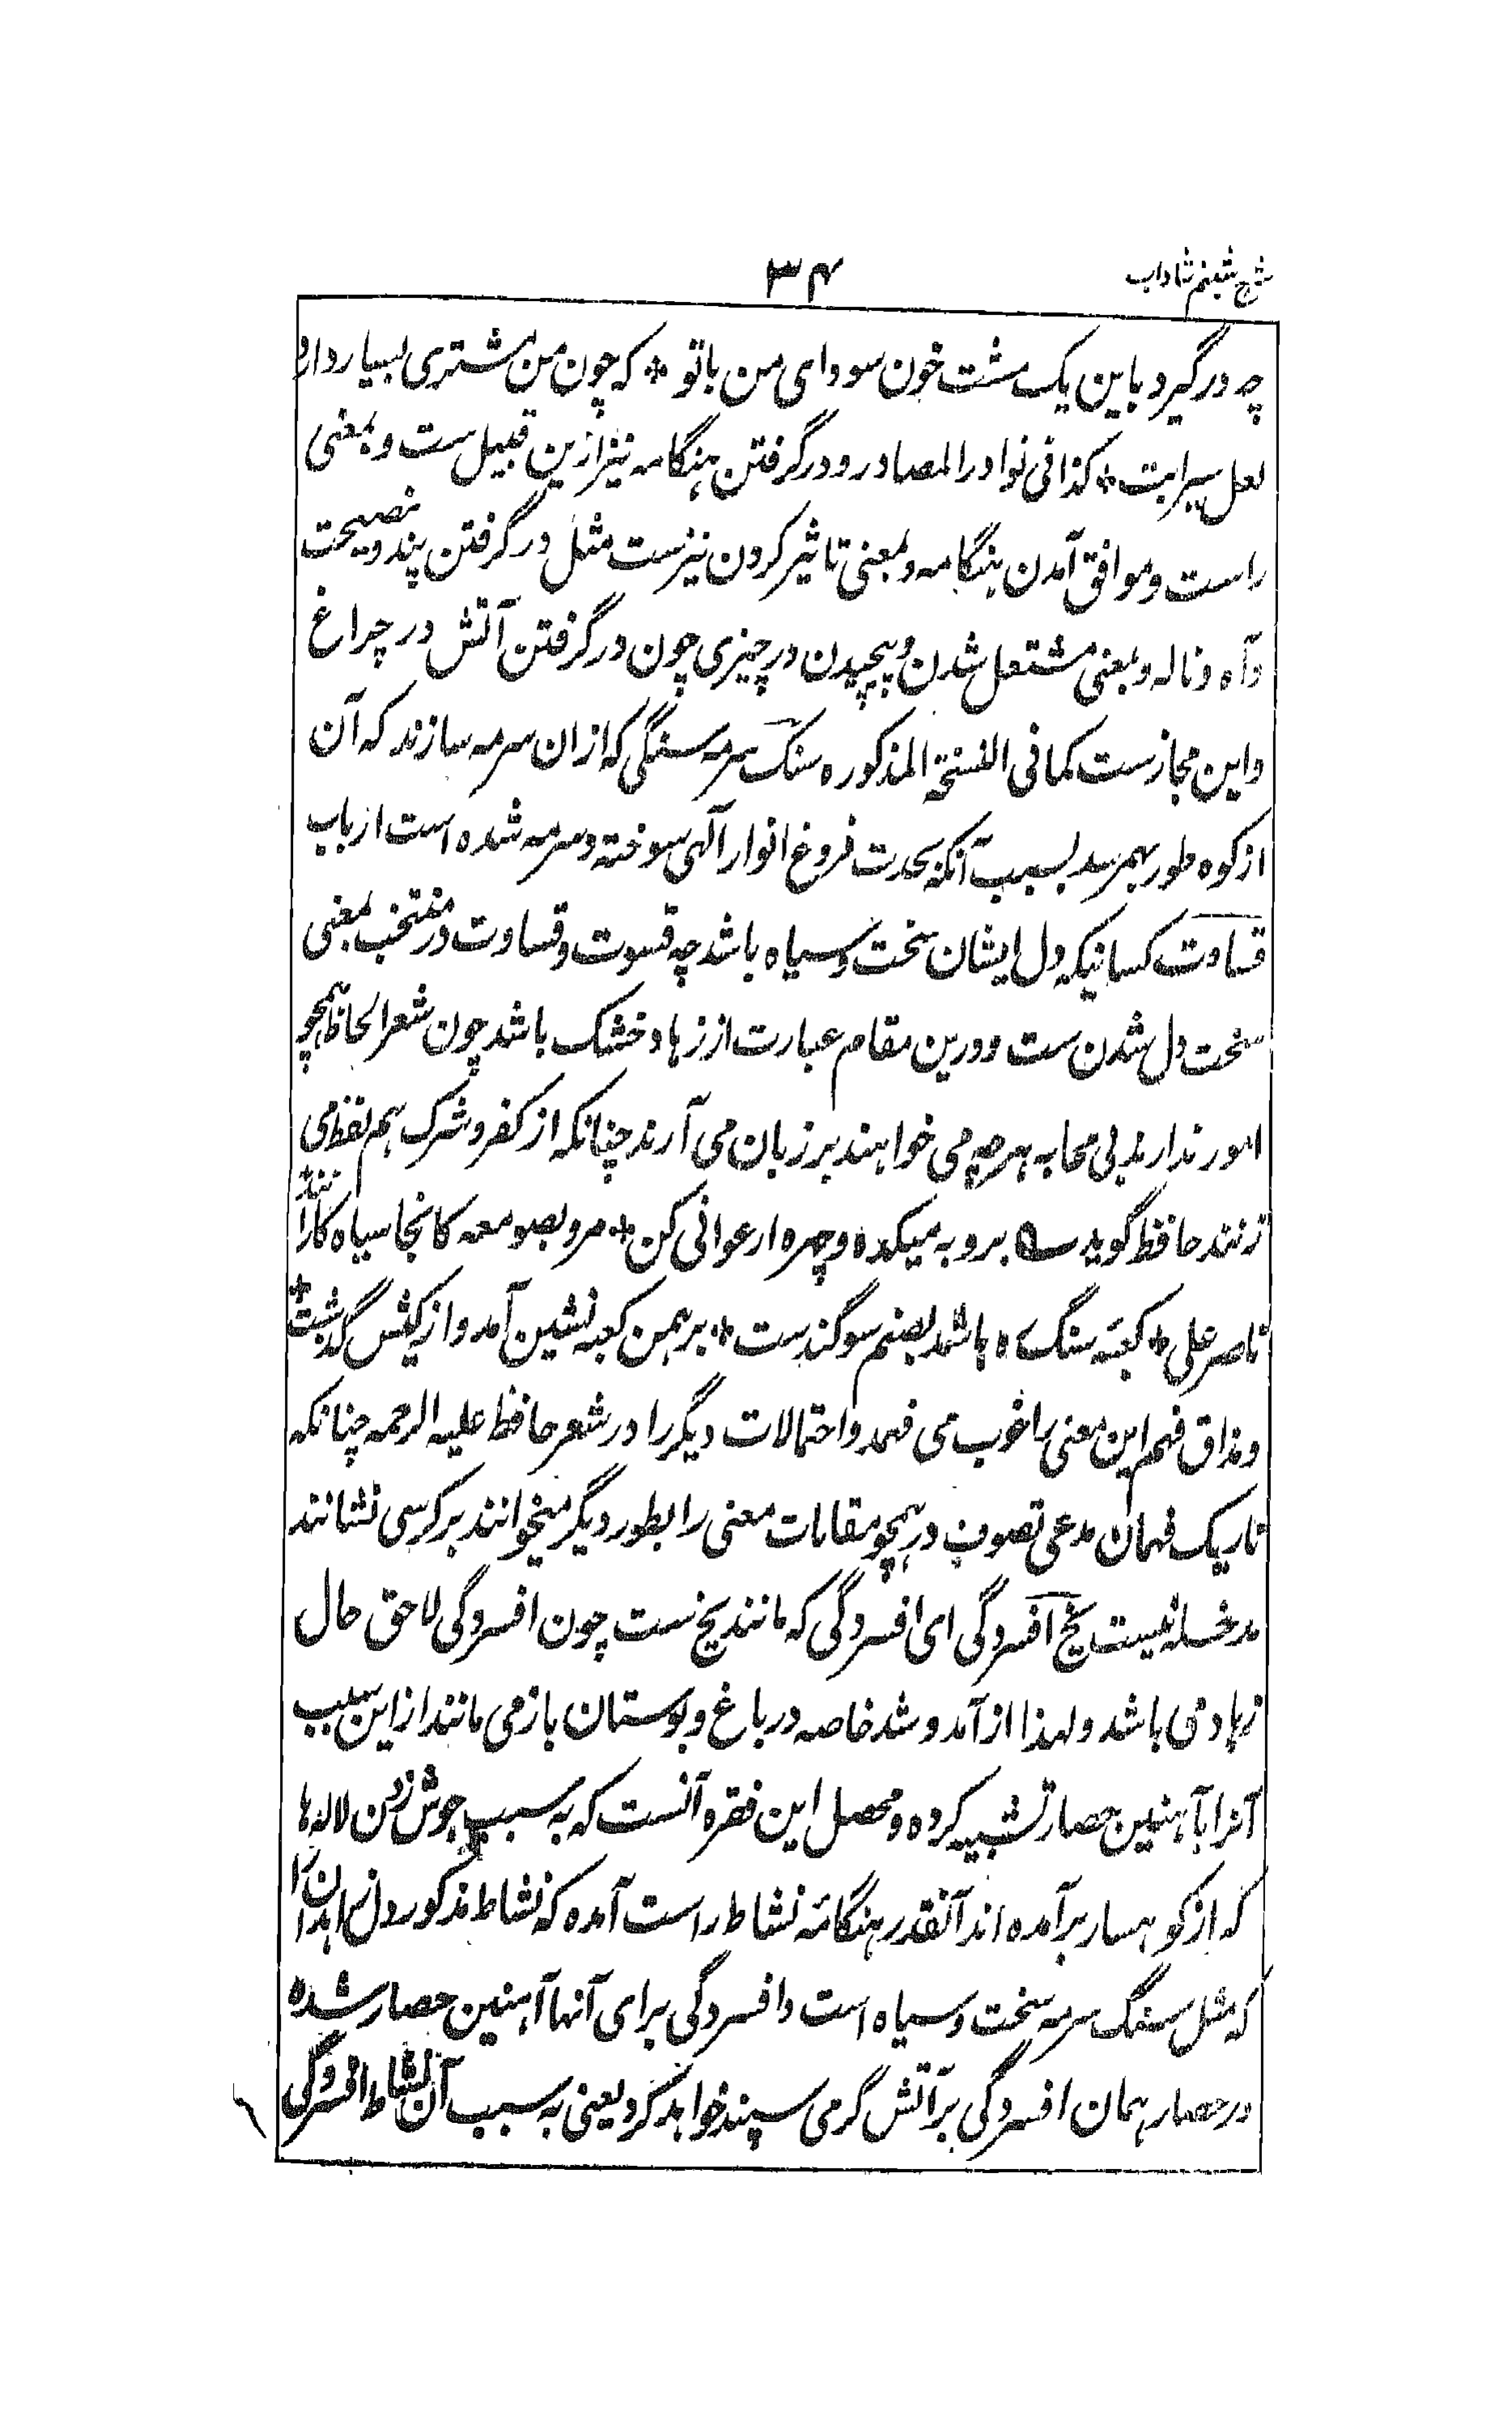 شرح شبنم شاداب
۳۴
چه درگیرد باین یک مشت خون سودای من باتو * که چون من مشتری بسیار دارد
لعل سیرابت * کذا فی نوادر المصادر و درگرفتن ہنگامہ نیز ازین قبیل ست و بمعنی
راست و موافق آمدن ہنگامہ و بمعنی تاثیر کردن نیزست مثل درگرفتن پند و نصیحت
و آہ و نالہ و بمعنی مشتعل شدن و پیچیدن در چیزی چون درگرفتن آتش در چراغ
و این مجازست کما فی النسخۃ المذکورہ سنگ سرمہ سنگی کہ ازان سرمہ سازند کہ آن
از کوہ طور بہمرسد بسبب آنکہ بحدت فروغ انوار آلہی سوختہ و سرمہ شدہ است ارباب
قساوت کسانیکہ دل ایشان سخت و سیاہ باشد چہ قسوت و قساوت در منتخب بمعنی
سخت دل شدن ست و درین مقام عبارت از زہاد خشک باشد چون شعرا لحاظ ہمچو
امور ندارند بی محابہ ہرچہ می خواہند بر زبان می آرند چنانکہ از کفر و شرک ہم نفظ می
زنند حافظ گوید برو بہ میکدہ و چہرہ ارغوانی کن * مرو بصومعہ کانجا سیاہ کارانند
ناصر علی * کعبہ سنگ رہ باشد بصنم سوگندست * برہمن کعبہ نشین آمد و از کیش گذشت *
و مذاق فہم این معنی را خوب می فہمد و احتمالات دیگر را در شعر حافظ علیہ الرحمہ چنانکہ
تاریک فہمان مدعی تصوف در ہمچو مقامات معنی را بطور دیگر میخوانند بر کرسی نشانند
مدخلہ نیست یخ افسردگی ای افسردگی کہ مانند یخ ست چون افسردگی لاحق حال
زہاد می باشد و لہذا از آمد و شد خاصہ در باغ و بوستان باز می مانند ازاین سبب
آنرا بآہنین حصار تشبیہ کردہ و محصل این فقرہ آنست کہ بہ سبب جوش زدن لالہ ہا
کہ از کوہسار برآمدہ اند آنقدر ہنگامۂ نشاط راست آمدہ کہ نشاط مذکور دل زاہدان را
کہ مثل سنگ سرمہ سخت و سیاہ است و افسردگی برای آنہا آہنین حصار شدہ
در حصار ہمان افسردگی بر آتش گرمی سپند خواہد کرد یعنی بہ سبب آن نشاط افسردگی